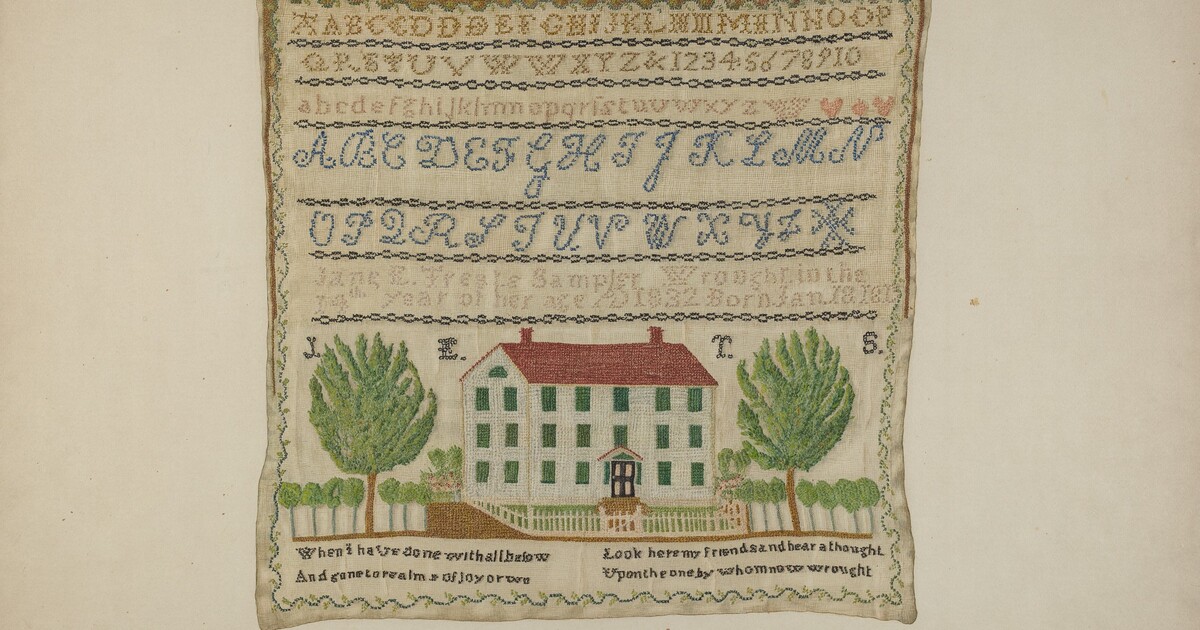 A A B C C D D D E F G H I J K L M M N N O O P
Q R S T U V W W X Y Z & 1 2 3 4 5 6 7 8 9 10
a b c d e f g h i j k l m n o p q r s t u v w x y z
A B C D E F G H I J K L M N
O P Q R S T U V W X Y Z
Jane E. Sampler Wrought in the
14th year of her age AD 1832 Born Jan. 18
J. E. T. S.
When I have done with all below
And gone to realms of Joy or wo
Look here my friends and bear a thought
Upon the one by whom now wrought